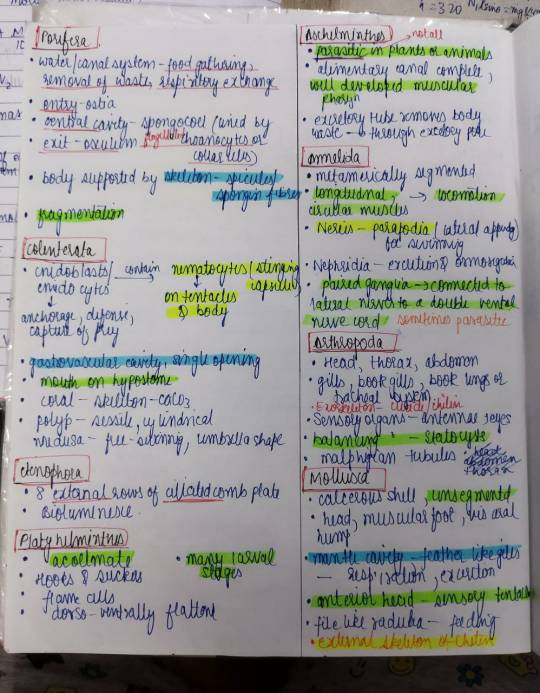 Porifera
• water/canal system - food gathering,
removal of waste, respiritory exchange
• entry - ostia
• central cavity - spongocoel (lined by
• exit - osculum flagellated choanocytes or
collar cells)
• body supported by skeleton - spicules/
spongin fibres
• fragmentation
Colenterata
• cnidoblasts/ contain nematocytes (stinging
cnidocytes capsules)
on tentacles
& body
anchorage, defense,
capture of prey
• gastrovascular cavity, single opening
• mouth on hypostome
• coral - skeleton - CaCO3
• polyp - sessile, cylindrical
medusa - free-swimming, umbrella shape
ctenophora
• 8 external rows of ciliated comb plate
• Bioluminesce.
Platyhelminthes
• acoelmate
• many larval
stages
• Hooks & suckers
• flame cells
• dorso-ventrally flattene
Aschelminthes not all
• parasitic in plants or animals
• alimentary canal complete,
well developed muscular
pharyn
• excretory tube removes body
waste → through excretory pore
annelida
• metamerically segmented
• longitudnal, → locomotion
circular muscles
• Nereis - parapodia (lateral appendages)
for swimming
• Nephridia - excretion & osmoregulation
• paired ganglia → connected to
lateral nerves to a double ventral
nerve cord sometimes parasitic
Arthropoda
• Head, thorax, abdomen
• gills, book gills, book lungs or
tracheal system
• Exoskeleton - cuticle/chitin
• Sensory organs - antennae, eyes
balancing - statocysts
• malphigian tubules • head
abdomen
thorax
Mollusca
• calcerous shell, unsegmented
• head, muscular foot, visceral
hump
• mantle cavity - feather like gills
- respiration, excretion
• anterior head - sensory tentacles
• file like radula - feeding
• external skeleton of chitin